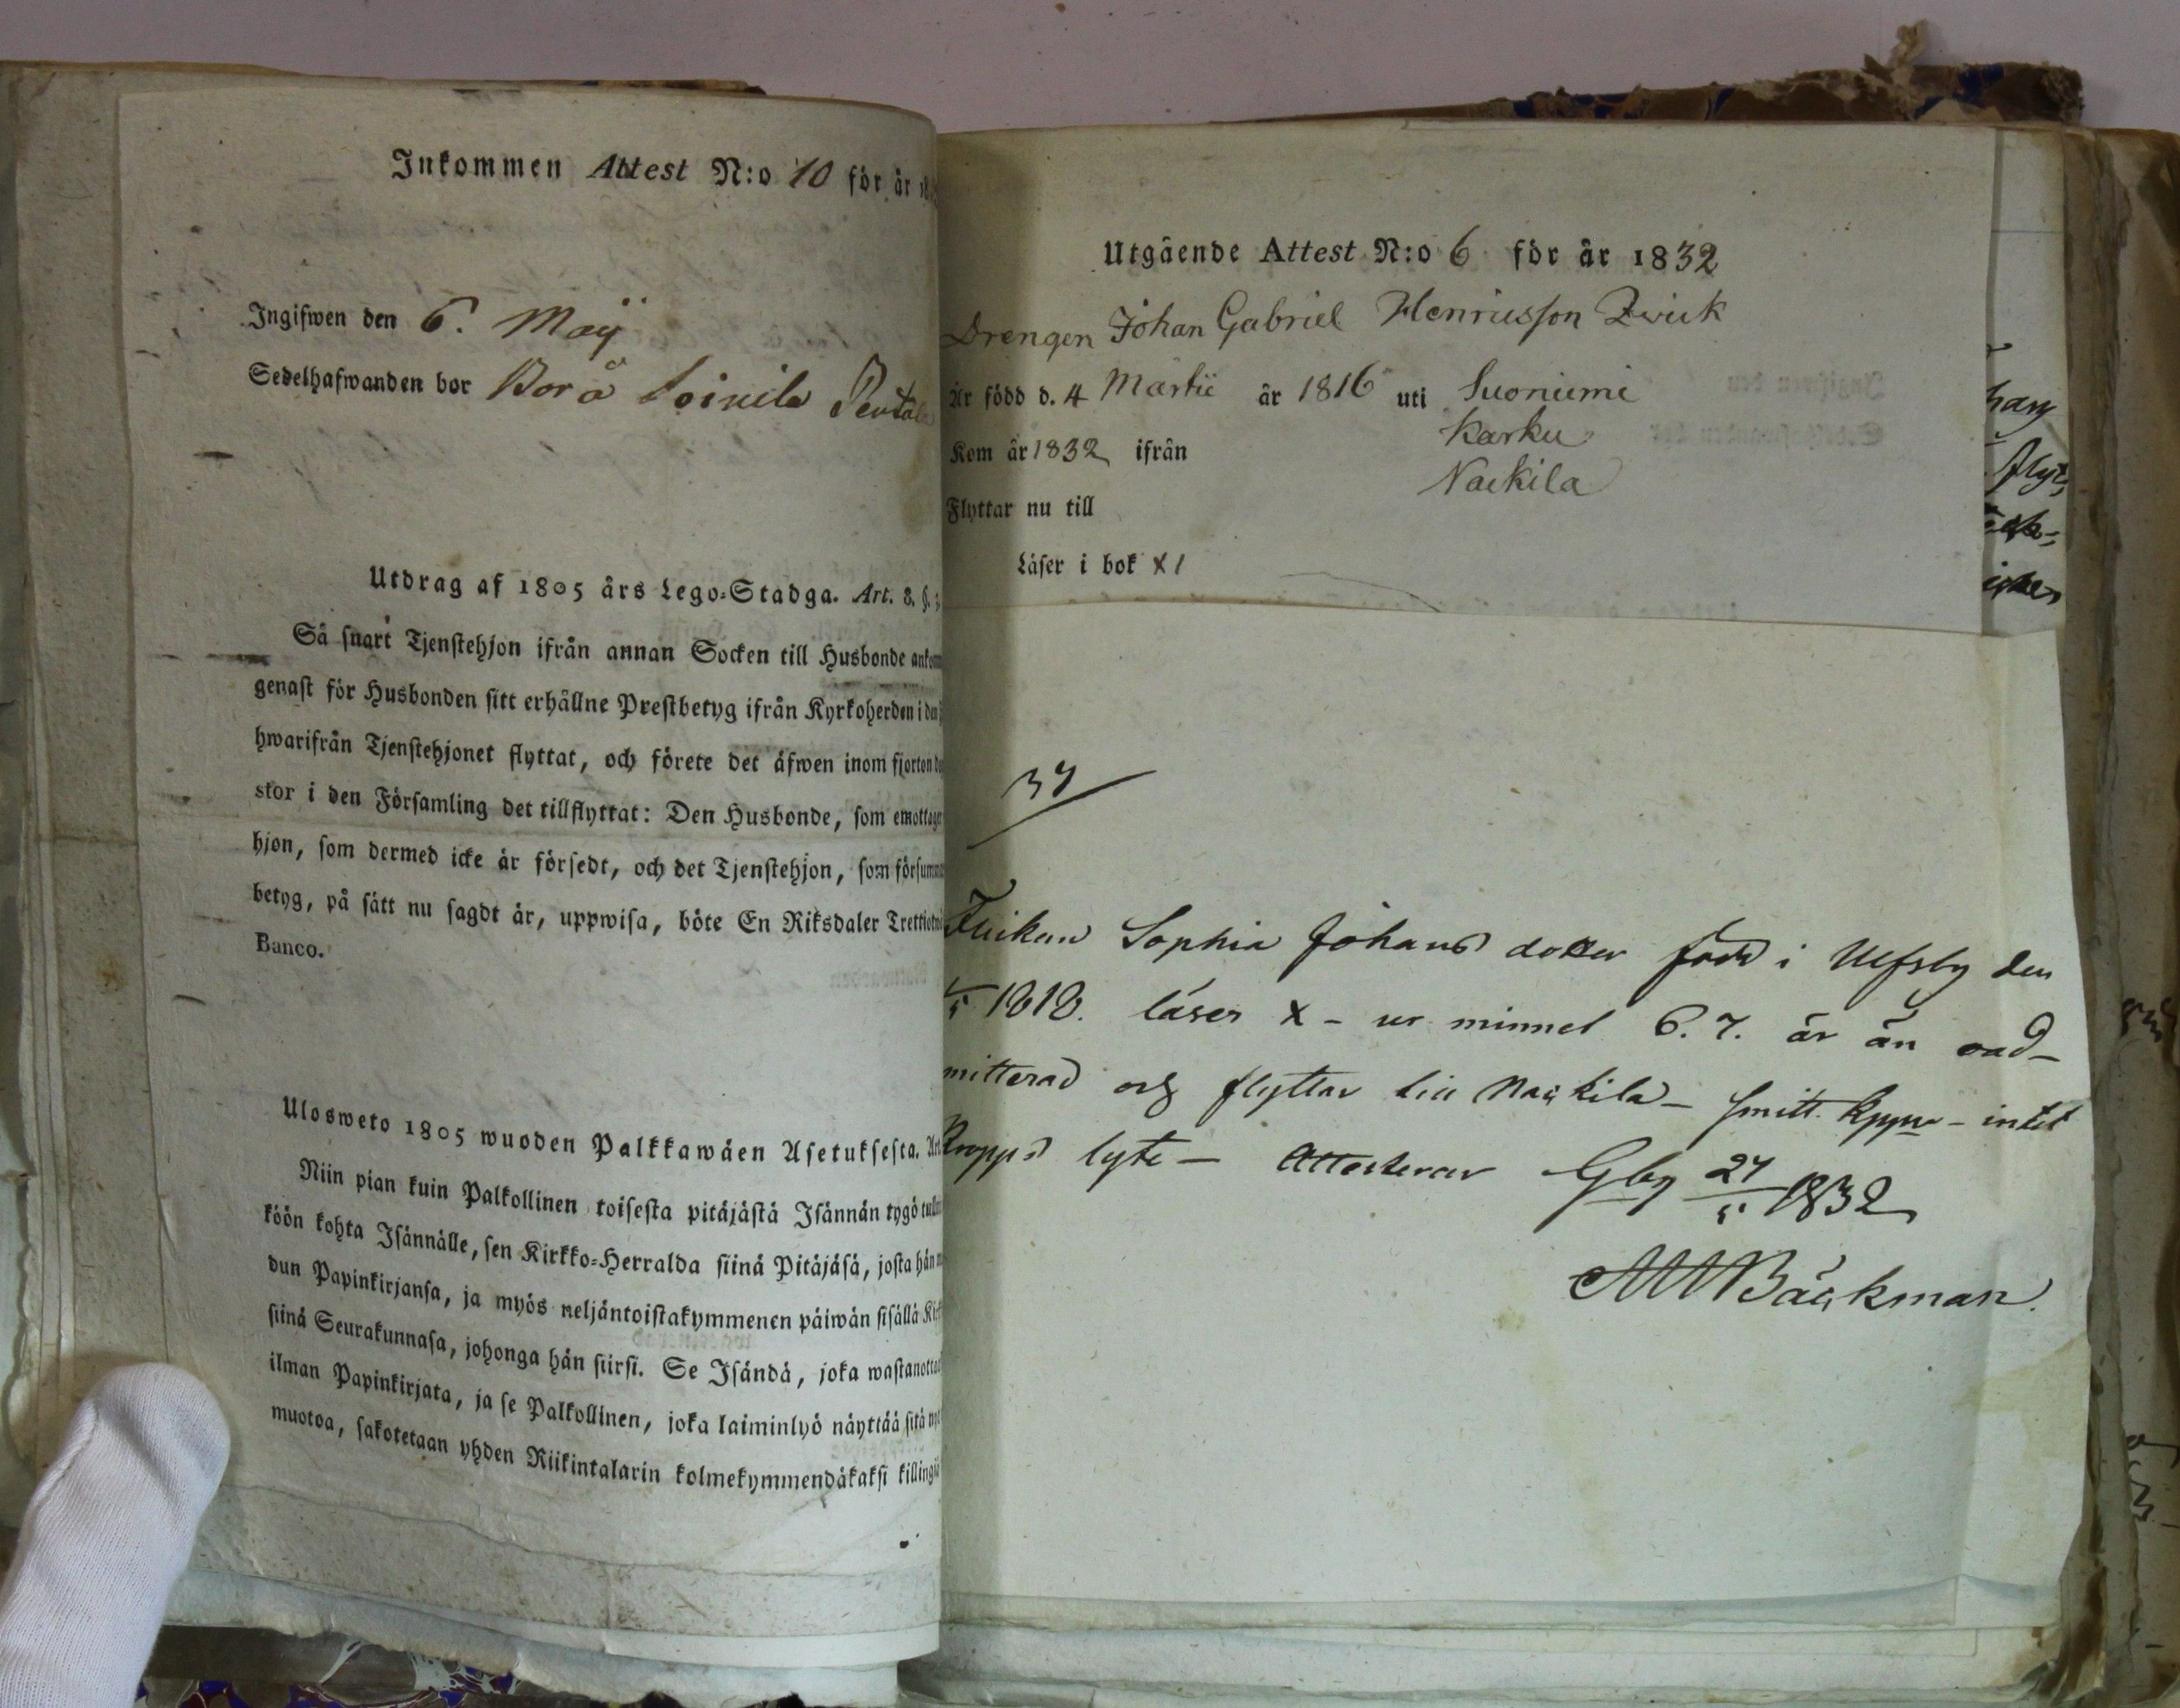 Inkommen Attest N:o 10 för år 18
Ingifwen den 6. Maÿ
Sedelhafwanden bor
Utdrag af 1805 års Lego-Stadga. Art. 8. §.
Så snart Tjenstehjon ifrån annan Socken till Husbonde ankom
genast för Husbonden sitt erhållne Prestbetyg ifrån Kyrkoherden i den
hwarifrån Tjenstehjonet flyttat, och förete det äfwen inom fjorton
stor i den Församling det tillflyttat: Den Husbonde, som emottager
hjon, som dermed icke är försedt, och det Tjenstehjon, som försumma
betyg, på sätt nu sagdt är, uppwisa, böte En Riksdaler Trettiotwå
Banco.
Ulosweto 1805 wuoden Palkkawäen Asetuksesta. Art.
Niin pian kuin Palkollinen toisesta pitäjästä Isännän tygö
köön kohta Isännälle, sen Kirkko-Herralda siinä Pitäjäsä, josta hän
dun Papinkirjansa, ja myös neljäntoistakymmenen päiwän sisällä
siinä Seurakunnasa, johonga hän siirsi. Se Isändä, joka wastanottaa
ilman Papinkirjata, ja se Palkollinen, joka laiminlyö näyttää sitä
muotoa, sakotetaan yhden Riikintalarin kolmekymmendäkaksi killingiä
Utgående Attest N:o 6 för år 1832
Drengen Johan Gabriel Henricsson Zwick
Är född d. 4 Martii år 1816 uti Suoniemi
Kom år 1832 ifrån Karku
Flyttar nu till Nackila
Läser i bok x1
34
Flickan Sophia Johans dotter född i Ulfsby den
1818. läser x - ur minnet 6. 7. är än oad-
mitterad och flyttar till Nackila - Smitt. kppr - intet
kropps lyte - Attesterar Gby 24/5 1832
Bäckman.